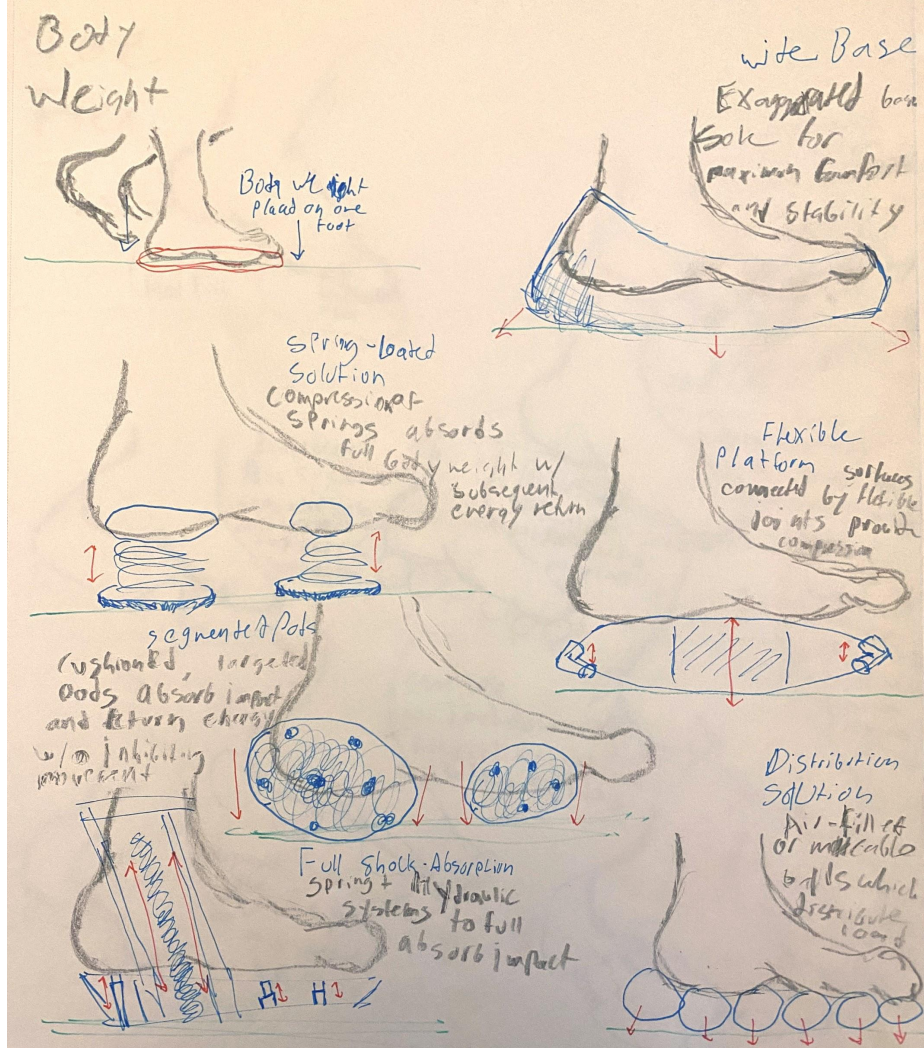 Body
Weight
Body weight
placed on one
foot
wide Base
Exaggerated base
sole for
maximum Comfort
and stability
Spring-loaded
Solution
compression of
springs absorbs
full body weight w/
subsequent
energy return
Flexible
Platform
surfaces
connected by flexible
joints provide
compression
segmented Pods
Cushioned, targeted
pods absorb impact
and return energy
w/o inhibiting
movement
Full Shock-Absorption
spring + Hydraulic
systems to full
absorb impact
Distribution
Solution
Air-filled
or malleable
balls which
distribute
load